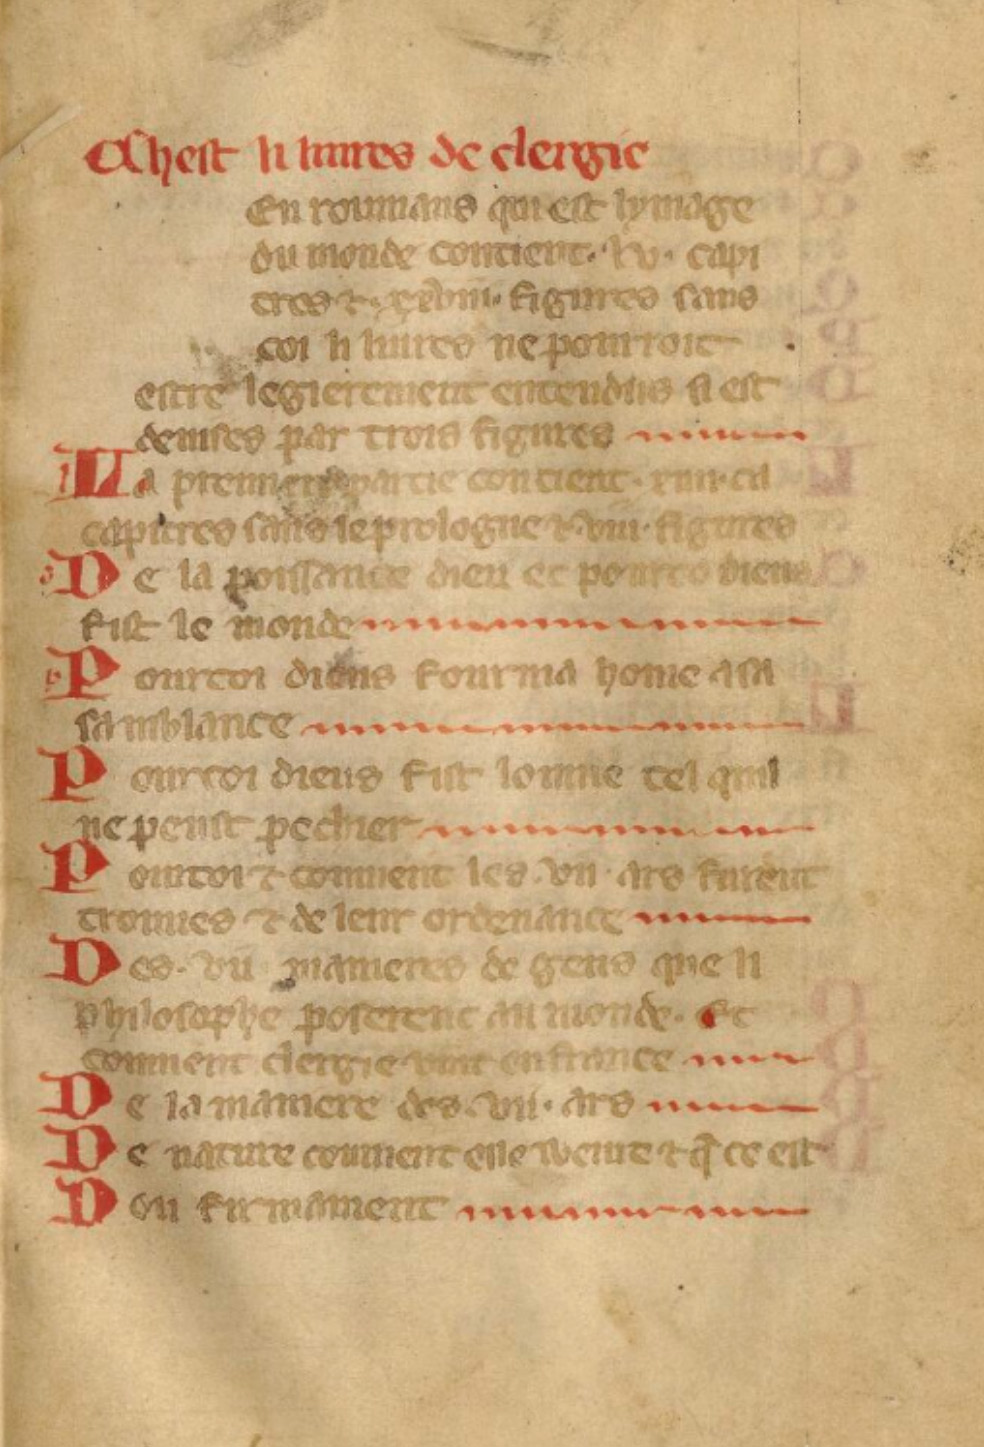 Chest li liures de clergie
en roumans qui est lymage
du monde contient. lv. capi
tres ⁊. xxviii. figures sans
coi li liures ne pourroit
estre legierement entendus si est
deuises par trois figures
La premiere partie contient. xiiii. ca
capitres sans le prologue ⁊. viii. figures
De la poissance dieu et pourcoi dieus
fist le monde
Pourcoi dieus fourma home a sa
samblance
Pourcoi dieus fist lomme tel quil
ne peust pechier
Pourcoi ⁊ comment les. vii. ars furent
trouues ⁊ de leur ordenance
Des. vii. manieres de gens que li
philosophe poserent au monde. Et
comment clergie vint en france
De la maniere des. vii. ars
De nature comment elle oeuure ⁊ q̄ ce est
Dou firmament